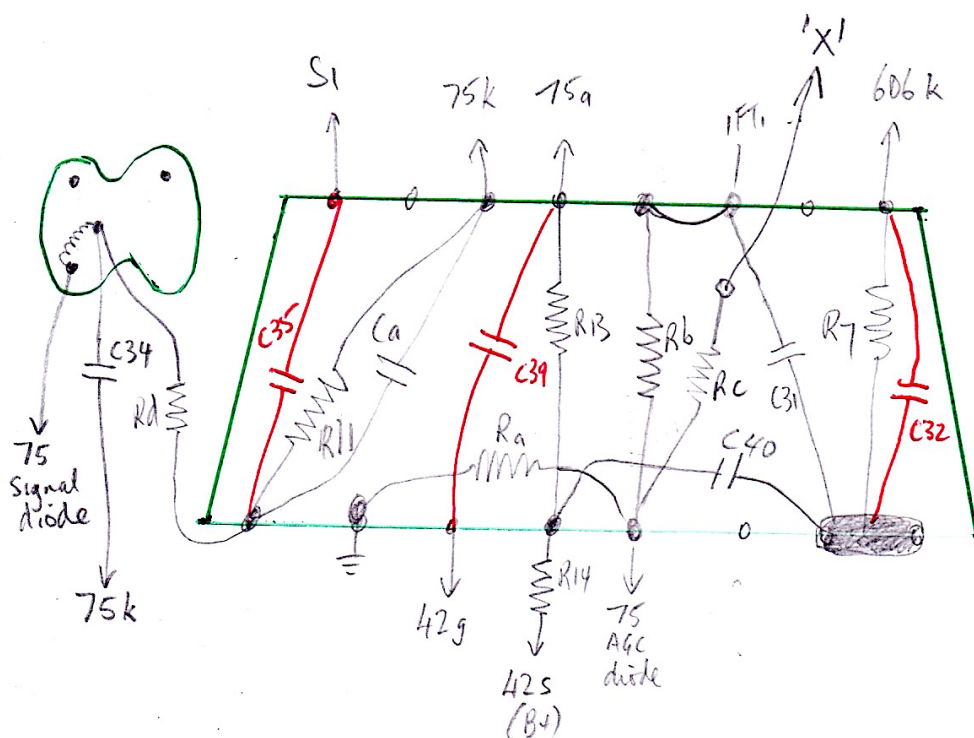 S1
75k
75a
IFT1
'X'
606k
C34
Rd
C35
R11
Ca
C39
R13
Rb
Rc
C31
R7
C32
Ra
C40
75
signal
diode
75k
42g
R14
42s
(B+)
75
AGC
diode